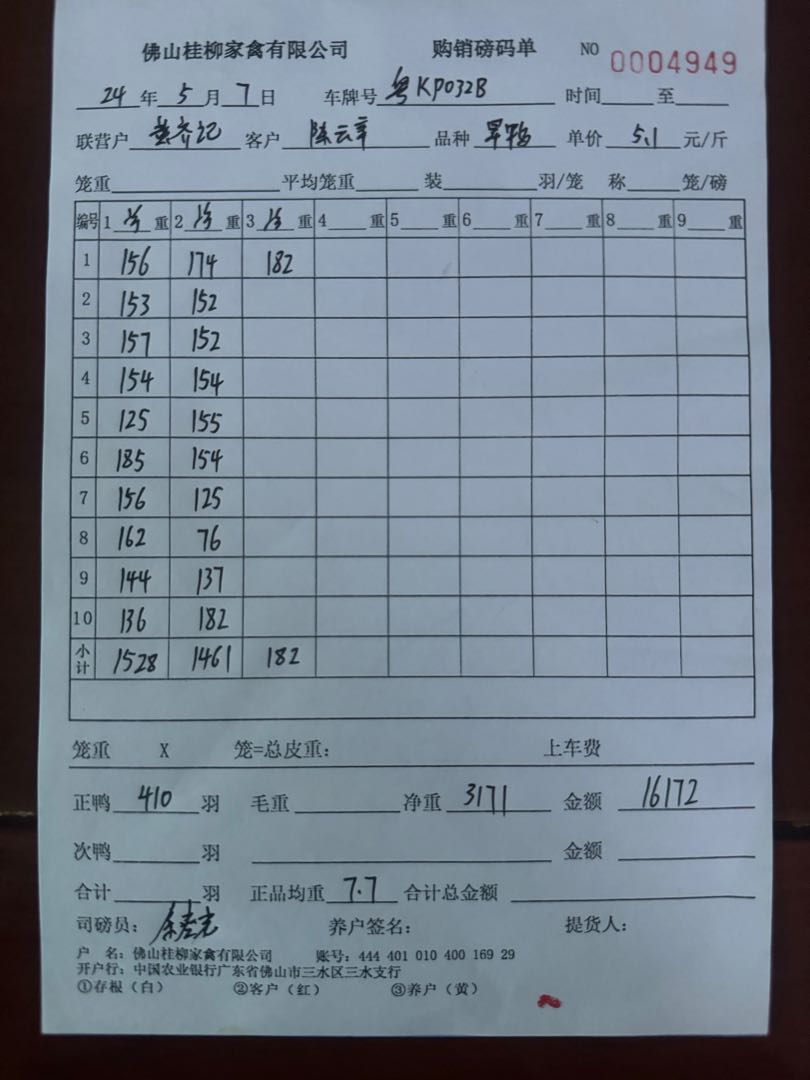 佛山桂柳家禽有限公司 购销磅码单 NO 0004949
24年5月7日 车牌号 粤KP032B 时间 至
联营户 客户 陈云章 品种 单价 5.1 元/斤
笼重 平均笼重 装 羽/笼 称 笼/磅
编号 1 重 2 重 3 重 4 重 5 重 6 重 7 重 8 重 9 重
1 156 174 182
2 153 152
3 157 152
4 154 154
5 125 155
6 185 154
7 156 125
8 162 76
9 144 137
10 136 182
小计 1528 1461 182
笼重 X 笼=总皮重: 上车费
正鸭 410 羽 毛重 净重 3171 金额 16172
次鸭 羽 金额
合计 羽 正品均重 7.7 合计总金额
司磅员: 养户签名: 提货人:
户 名: 佛山桂柳家禽有限公司 账号: 444 401 010 400 169 29
开户行: 中国农业银行广东省佛山市三水区三水支行
①存根（白） ②客户（红） ③养户（黄）